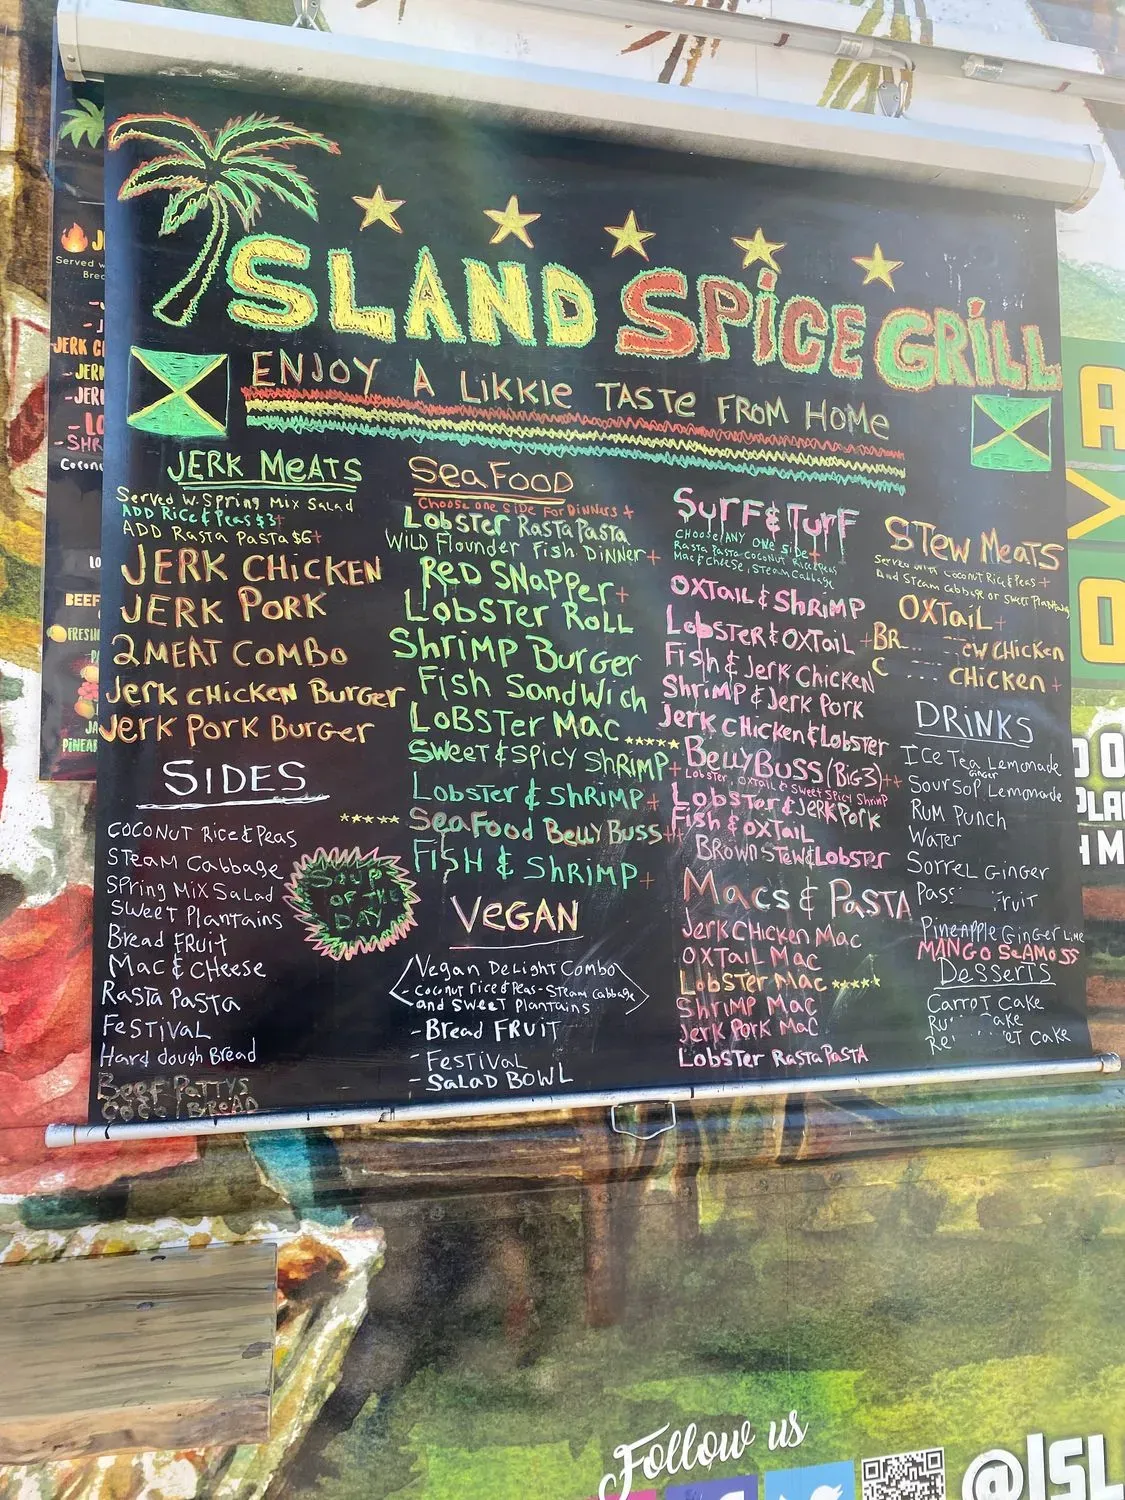 ISLAND SPICE GRILL
ENJOY A LIKKIE TASTE FROM HOME
JERK MEATS
Served W. Spring Mix Salad
ADD Rice & Peas $3+
ADD Rasta Pasta $6+
JERK CHICKEN
JERK PORK
2 MEAT COMBO
Jerk CHICKEN Burger
Jerk PORK Burger
SIDES
COCONUT Rice & Peas
STEAM Cabbage
Spring Mix Salad
SWEET Plantains
Bread FRuit
Mac & CHeese
Rasta Pasta
FeSTIVAL
Hard dough Bread
Beef Pattys
Coco BREAD
SOUP
OF THE
DAY
SeaFOOD
Choose one side For Dinners +
Lobster Rasta Pasta
WILD Flounder Fish Dinner +
Red SNapper +
Lobster Roll
Shrimp Burger
Fish Sandwich
LOBSTer Mac
Sweet & Spicy Shrimp +
Lobster & Shrimp +
SeaFood Belly Buss ++
FISH & Shrimp +
VEGAN
Vegan Delight Combo
- Coconut rice & Peas - Steam Cabbage
and Sweet Plantains
- Bread FRUIT
- FeSTIVAL
- SALAD BOWL
SURF & TURF
Choose ANY One Side +
Rasta Pasta Coconut Rice & Peas
Mac & Cheese, Steam Cabbage
OXTail & Shrimp
Lobster & OXTail +
Fish & Jerk Chicken
Shrimp & Jerk Pork
Jerk CHicken & Lobster
BellyBuss (Big 3) ++
Lobster, Oxtail & Sweet Spicy Shrimp
Lobster & Jerk Pork
Fish & oxTail
Brown Stew & Lobster
Macs & Pasta
Jerk CHicken Mac
OXTail Mac
Lobster Mac
Shrimp Mac
Jerk Pork Mac
Lobster Rasta Pasta
STew MeaTS
Served with Coconut Rice & Peas +
And Steam Cabbage or Sweet Plantains
OXTail +
BR ew Chicken
C CHicken +
DRINKS
Ice Tea Lemonade
Ginger
Soursop Lemonade
Rum Punch
Water
Sorrel Ginger
Pass ruit
Pineapple Ginger Lime
MANGO SeaMoss
Desserts
Carrot Cake
Ru ake
Re et Cake
Follow us
@ISL